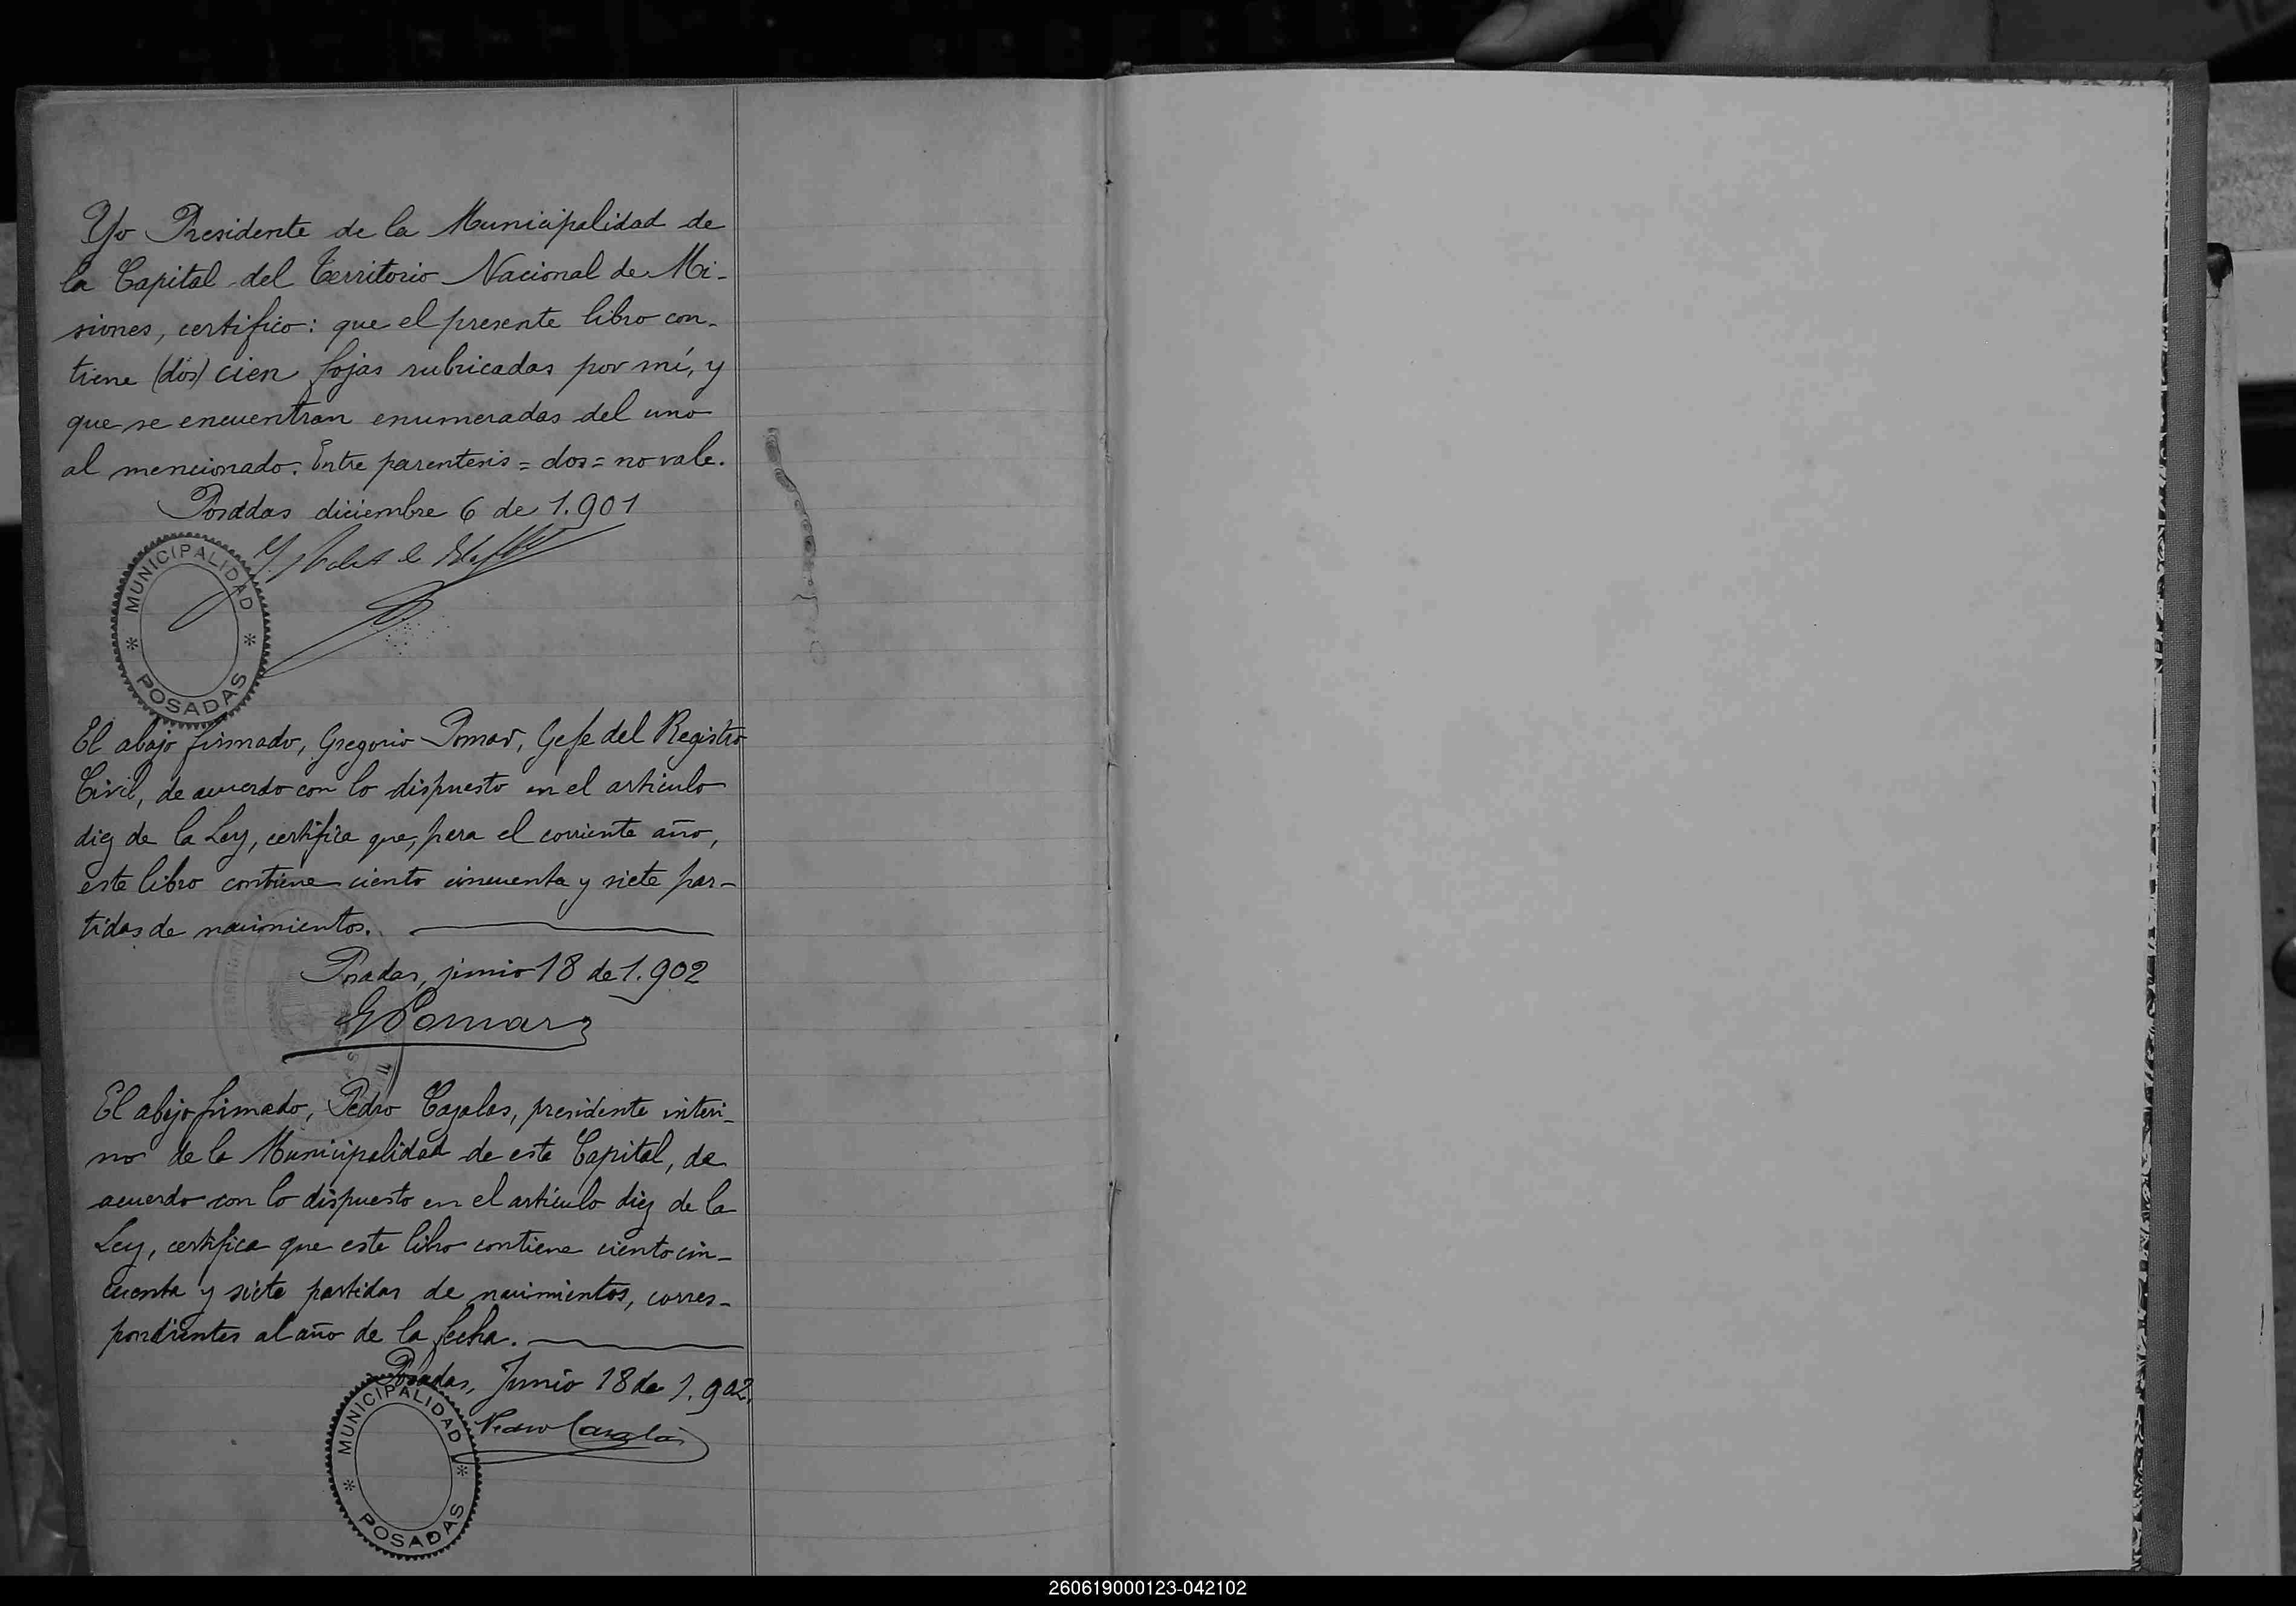 Yo Presidente de la Municipalidad de
la Capital del Territorio Nacional de Mi-
siones, certifico: que el presente libro con-
tiene (dos) cien fojas rubricadas por mí, y
que se encuentran enumeradas del uno
al mencionado. Entre parentesis = dos = no vale.
Posadas diciembre 6 de 1.901
MUNICIPALIDAD
POSADAS
El abajo firmado, Gregorio Pomar, Gefe del Registro
Civil, de acuerdo con lo dispuesto en el articulo
diez de la Ley, certifica que, para el corriente año,
este libro contiene ciento cincuenta y siete par-
tidas de nacimientos.
Posadas, junio 18 de 1.902
G Pomar
El abajo firmado, Pedro Cazalas, presidente interi-
no de la Municipalidad de esta Capital, de
acuerdo con lo dispuesto en el artículo diez de la
Ley, certifica que este libro contiene ciento cin-
cuenta y siete partidas de nacimientos, corres-
pondientes al año de la fecha.
Posadas, Junio 18 de 1.902.
Pedro Cazalás
MUNICIPALIDAD
POSADAS
260619000123-042102